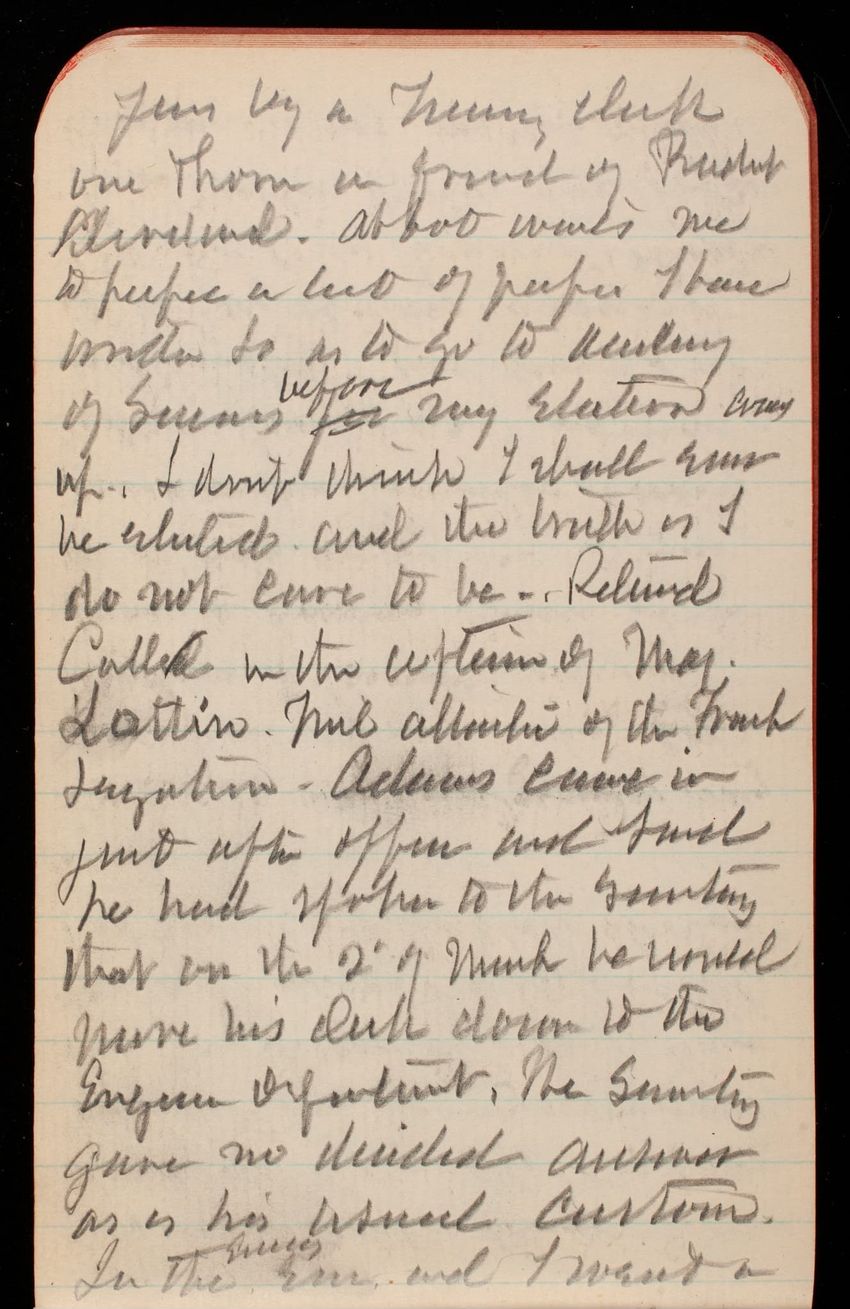 by a Treasury clerk
one Thom a friend of Presdt
Cleveland. Abbot wants me
to prepare a list of papers I have
written so as to go to Academy
of Sciences before my election comes
up. I dont think I shall ever
be elected and the truth is I
do not care to be. Retired
Called in the afternoon of May.
Lottin. Mil attache of the French
Legation - Adams came in
just after office and said
he had spoken to the Secretary
that on the 2d of March he would
move his desk down to the
Engineer Department. The Secretary
gave no decided answer
as is his usual custom.
In the and I went a